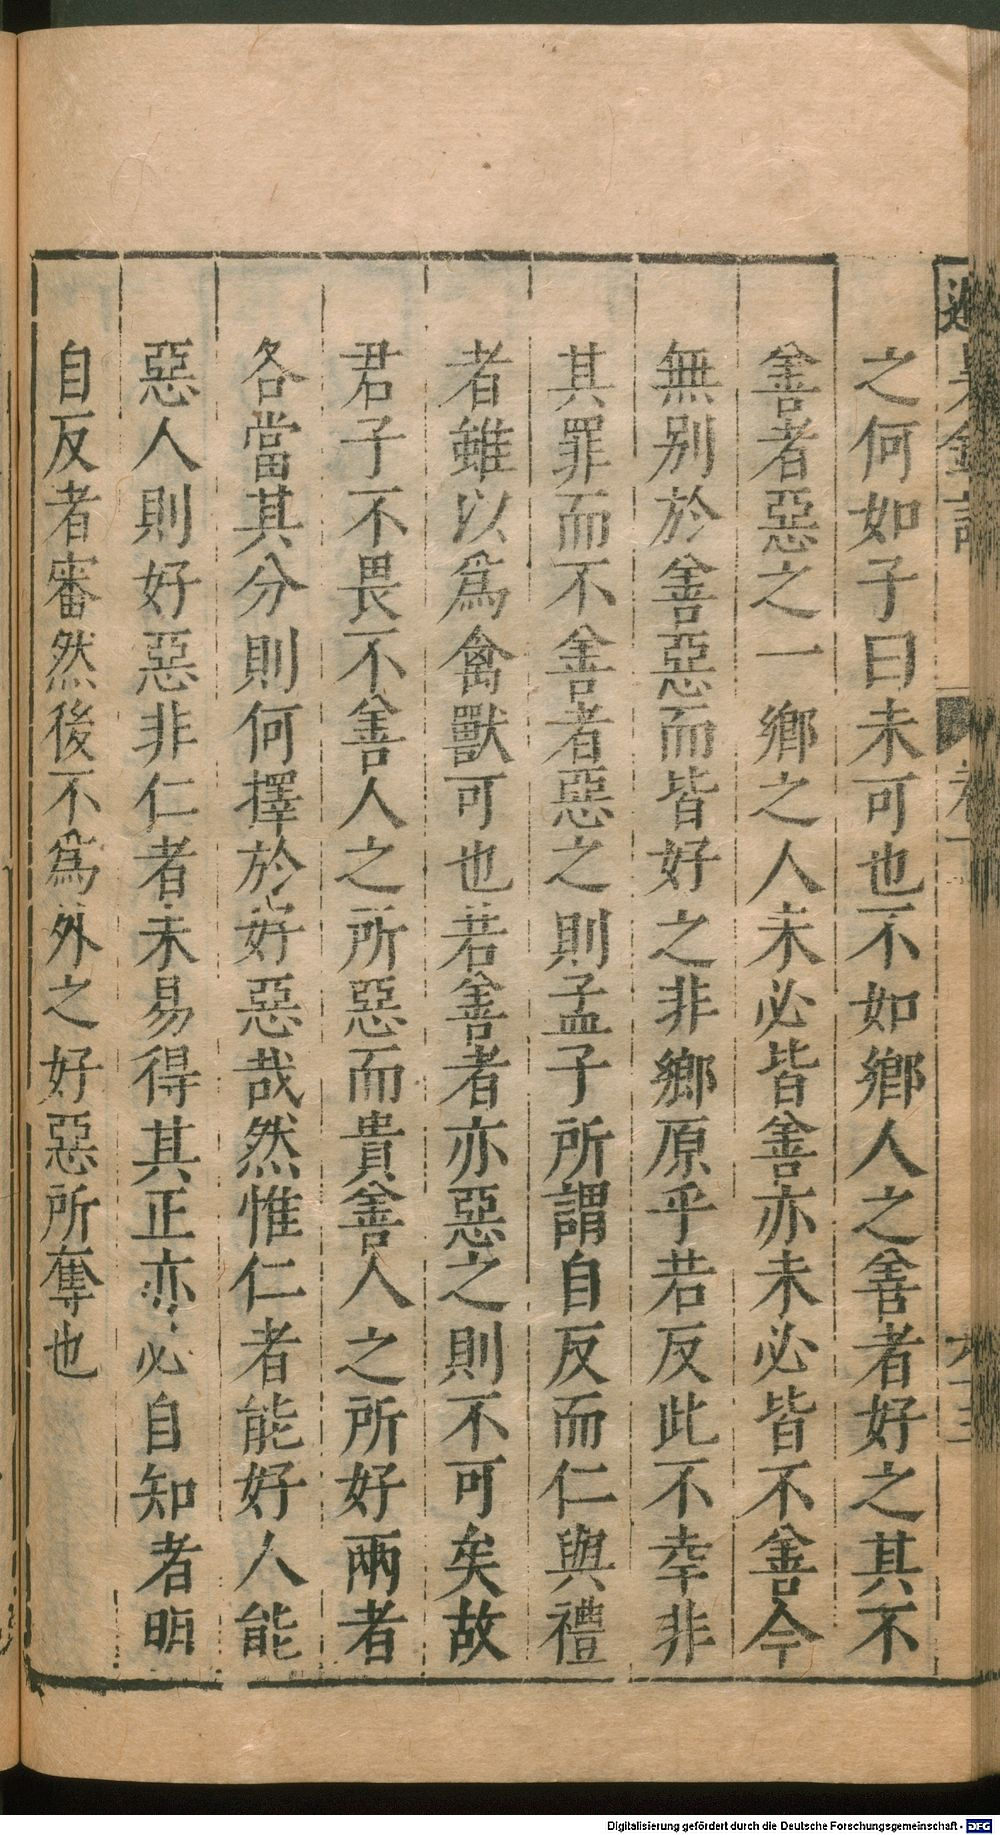 之何如子曰未可也不如鄉人之善者好之其不
善者惡之一鄉之人未必皆善亦未必皆不善今
無别於善惡而皆好之非鄉原乎若反此不幸非
其罪而不善者惡之則孟子所謂自反而仁與禮
者雖以爲禽獸可也若善者亦惡之則不可矣故
君子不畏不善人之所惡而貴善人之所好兩者
各當其分則何擇於好惡哉然惟仁者能好人能
惡人則好惡非仁者未易得其正亦必自知者明
自反者審然後不爲外之好惡所奪也
Digitalisierung gefördert durch die Deutsche Forschungsgemeinschaft - DFG